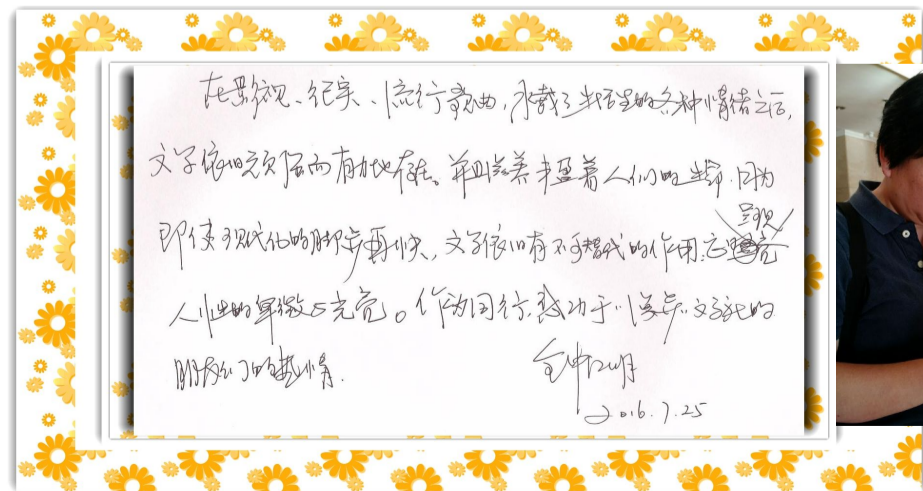 在影视、纪实、流行歌曲,承载了半活生的各种情绪之后,
文学依旧顽强而有力地存在。并且滋养丰盈着人们的生命,因为
即使现代化的脚步再快,文学依旧有不可替代的作用:它呈现
人性的卑微与光亮。作为同行,感动于
朋友们的热情.
2016.7.25